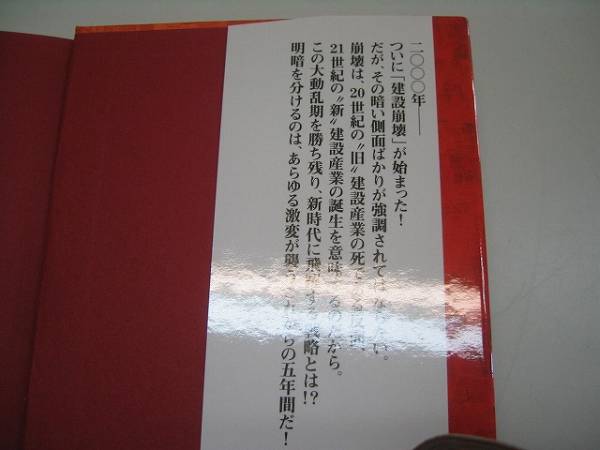 二〇〇〇年――
ついに「建設崩壊」が始まった！
だが、その暗い側面ばかりが強調されてはならない。
崩壊は、20世紀の〝旧〟建設産業の死である反面、
21世紀の〝新〟建設産業の誕生を意味するのだから。
この大動乱期を勝ち残り、新時代に飛翔する戦略とは！？
明暗を分けるのは、あらゆる激変が襲うこれからの五年間だ！